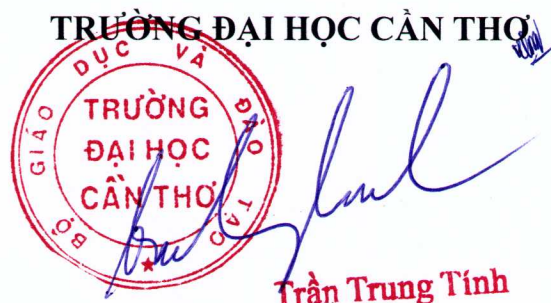 TRƯỜNG ĐẠI HỌC CẦN THƠ
BỘ GIÁO DỤC VÀ ĐÀO TẠO
TRƯỜNG
ĐẠI HỌC
CẦN THƠ
Trần Trung Tính